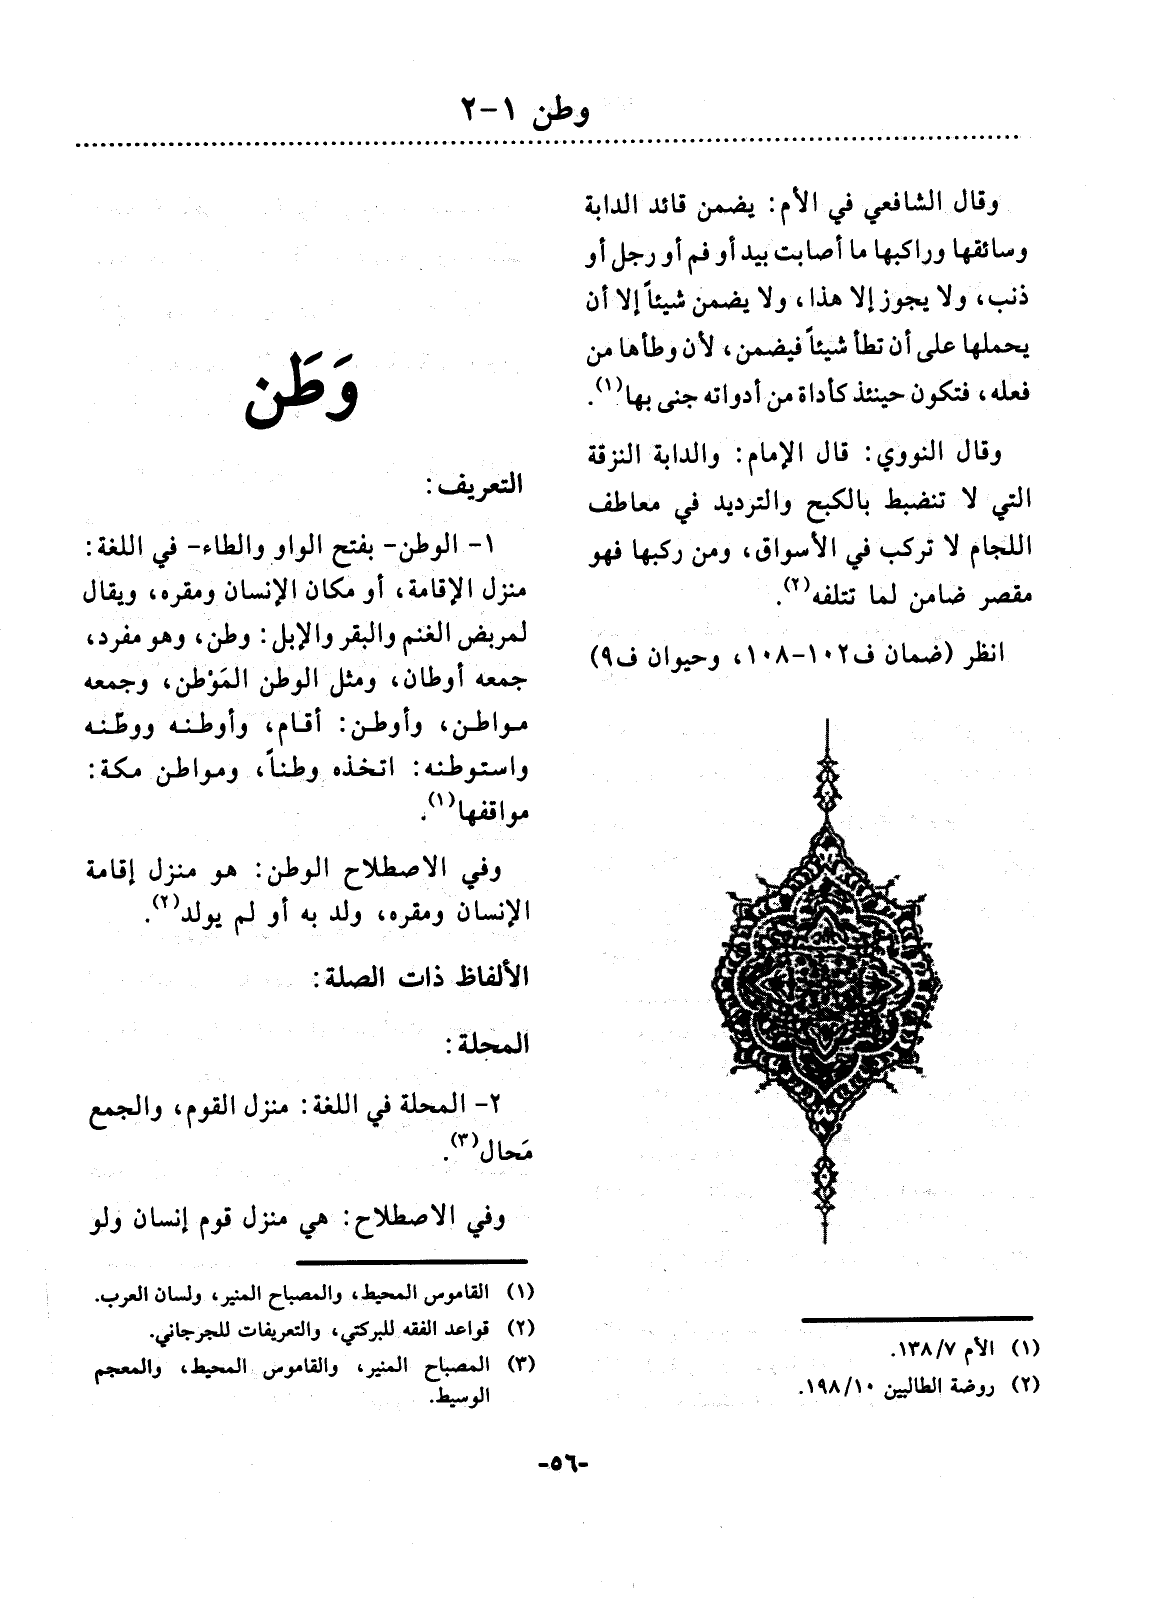 وطن ١-٢
وقال الشافعي في الأم: يضمن قائد الدابة
وسائقها وراكبها ما أصابت بيد أو فم أو رجل أو
ذنب، ولا يجوز إلا هذا، ولا يضمن شيئاً إلا أن
يحملها على أن تطأ شيئاً فيضمن، لأن وطأها من
فعله، فتكون حينئذ كأداة من أدواته جنى بها(١).
وقال النووي: قال الإمام: والدابة النزقة
التي لا تنضبط بالكبح والترديد في معاطف
اللجام لا تركب في الأسواق، ومن ركبها فهو
مقصر ضامن لما تتلفه(٢).
انظر (ضمان ف١٠٢-١٠٨، وحيوان ف٩)
(١) الأم ١٣٨/٧.
(٢) روضة الطالبين ١٩٨/١٠.
وَطَن
التعريف:
١- الوطن- بفتح الواو والطاء- في اللغة:
منزل الإقامة، أو مكان الإنسان ومقره، ويقال
لمربض الغنم والبقر والإبل: وطن، وهو مفرد،
جمعه أوطان، ومثل الوطن المَوْطن، وجمعه
مواطن، وأوطن: أقام، وأوطنه ووطّنه
واستوطنه: اتخذه وطناً، ومواطن مكة:
مواقفها(١).
وفي الاصطلاح الوطن: هو منزل إقامة
الإنسان ومقره، ولد به أو لم يولد(٢).
الألفاظ ذات الصلة:
المحلة:
٢- المحلة في اللغة: منزل القوم، والجمع
مَحال(٣).
وفي الاصطلاح: هي منزل قوم إنسان ولو
(١) القاموس المحيط، والمصباح المنير، ولسان العرب.
(٢) قواعد الفقه للبركتي، والتعريفات للجرجاني.
(٣) المصباح المنير، والقاموس المحيط، والمعجم
الوسيط.
-٥٦-